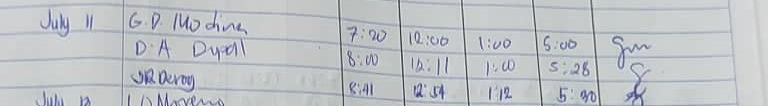 July 11 G.D. Modina 7:20 12:00 1:00 5:00
D.A Dyall 8:00 12:11 1:00 5:28
JR Deroy 8:41 12:54 1:12 5:30
July 12